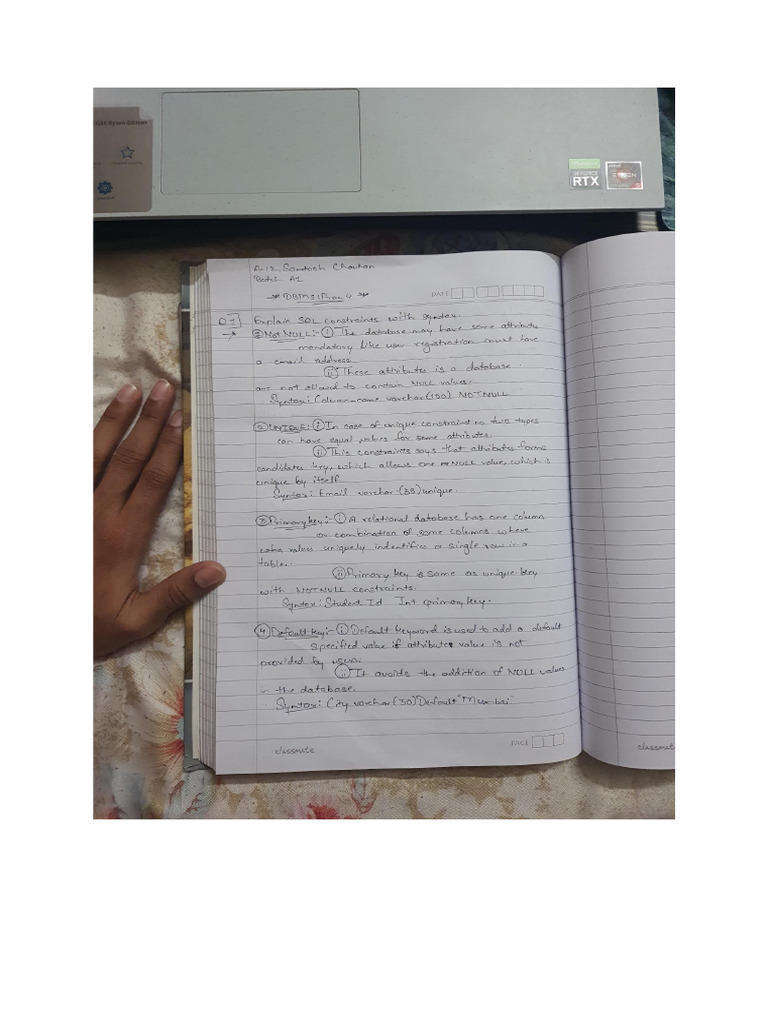 GEFORCE
RTX
RYZEN
A-12 Santosh Chauhan
Batch: A1
DATE
Q1 Explain SQL constraints with syntax.
→ ① NOT NULL:- ⓘ The database may have some attribute
mandatory like user registration must have
a email address.
ⓘⓘ These attributes is a database
are not allowed to contain NULL values.
Syntax: Columnname varchar(150) NOT NULL
② UNIQUE:- ⓘ In case of unique constraint no two types
can have equal values for same attributes.
ⓘⓘ This constraints says that attributes forms
candidates key, which allows one NULL value, which is
unique by itself.
Syntax: Email varchar (35) unique.
③ Primary key:- ⓘ A relational database has one column
or combination of some columns where
values uniquely indentifies a single row in a
table.
ⓘⓘ Primary key is same as unique key
with NOT NULL constraints.
Syntax: Student Id Int primary key.
④ Default key:- ⓘ Default keyword is used to add a default
specified value if attribute value is not
provided by user.
ⓘⓘ It avoids the addition of NULL values
in the database.
Syntax: City varchar (50) Default "Mumbai"
classmate
PAGE
classmate